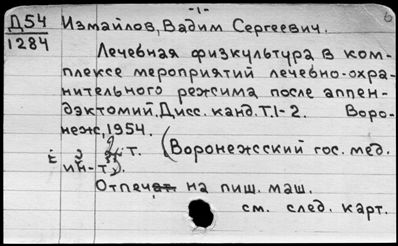 -1-
Д54 Измайлов, Вадим Сергеевич.
1284
Лечебная физкультура в ком-
плексе мероприятий лечебно-охра-
нительного режима после аппен-
дэктомий. Дисс. канд. Т.1-2. Воро-
неж, 1954.
2 т. (Воронежсский гос. мед.
ин-т).
Отпечат на пиш. маш.
см. след. карт.